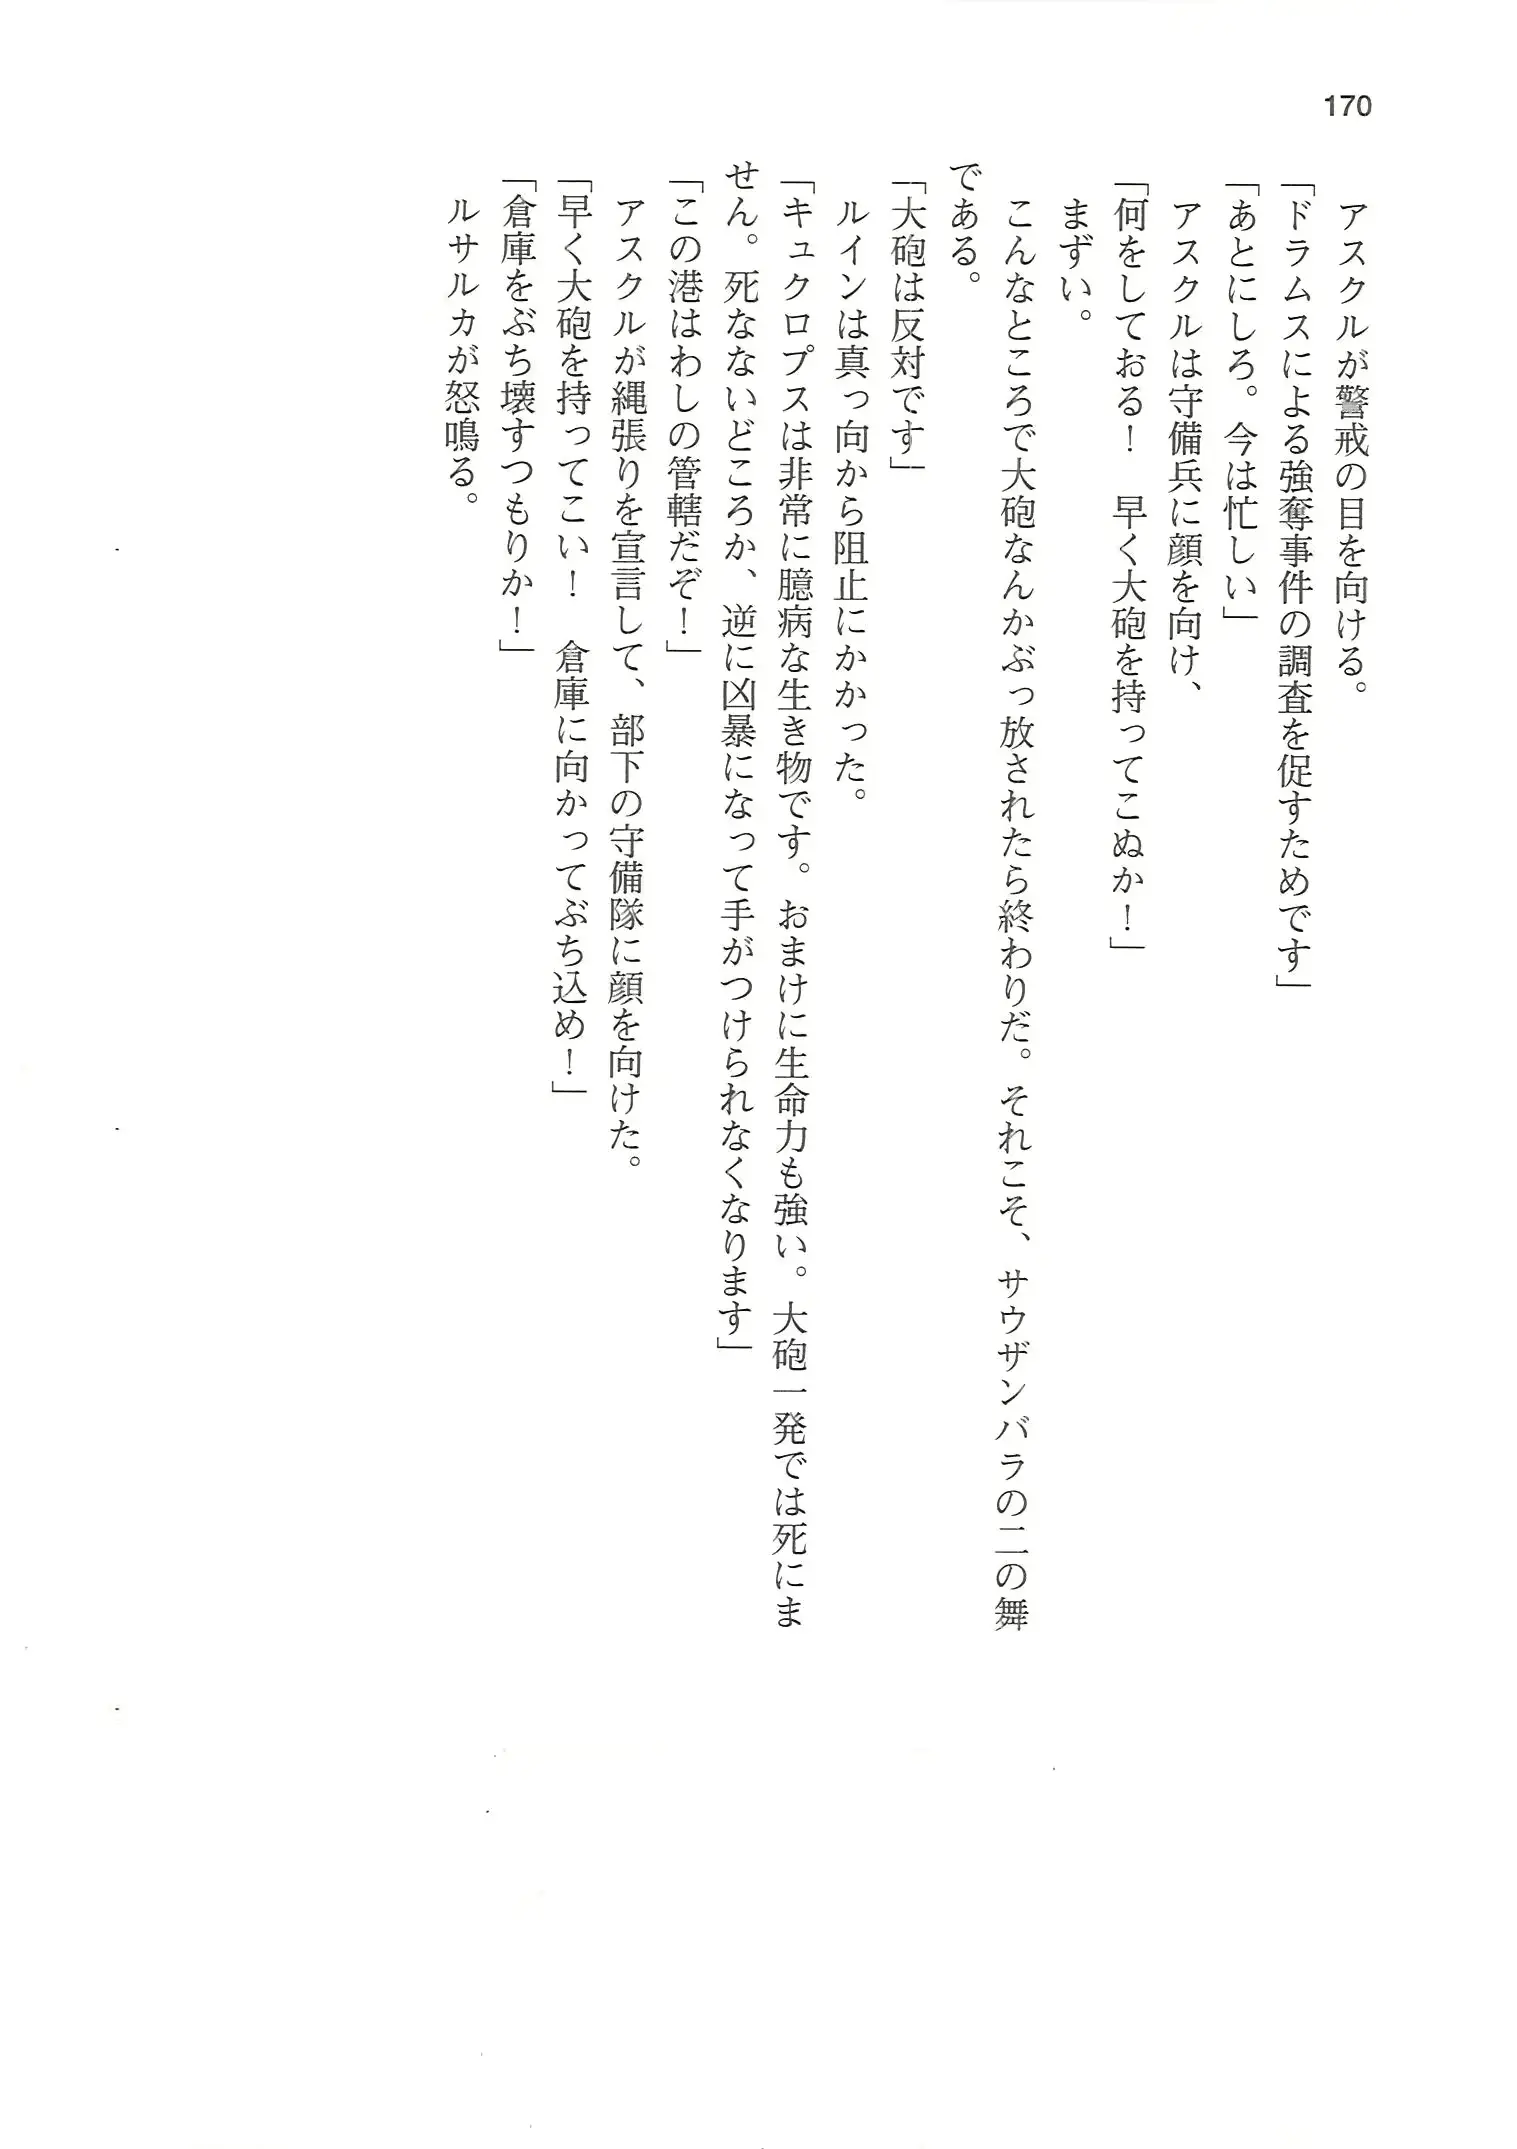 170
　アスクルが警戒の目を向ける。
「ドラムスによる強奪事件の調査を促すためです」
「あとにしろ。今は忙しい」
　アスクルは守備兵に顔を向け、
「何をしておる！　早く大砲を持ってこぬか！」
　まずい。
　こんなところで大砲なんかぶっ放されたら終わりだ。それこそ、サウザンバラの二の舞
である。
「大砲は反対です」
　ルインは真っ向から阻止にかかった。
「キュクロプスは非常に臆病な生き物です。おまけに生命力も強い。大砲一発では死にま
せん。死なないどころか、逆に凶暴になって手がつけられなくなります」
「この港はわしの管轄だぞ！」
　アスクルが縄張りを宣言して、部下の守備隊に顔を向けた。
「早く大砲を持ってこい！　倉庫に向かってぶち込め！」
「倉庫をぶち壊すつもりか！」
　ルサルカが怒鳴る。